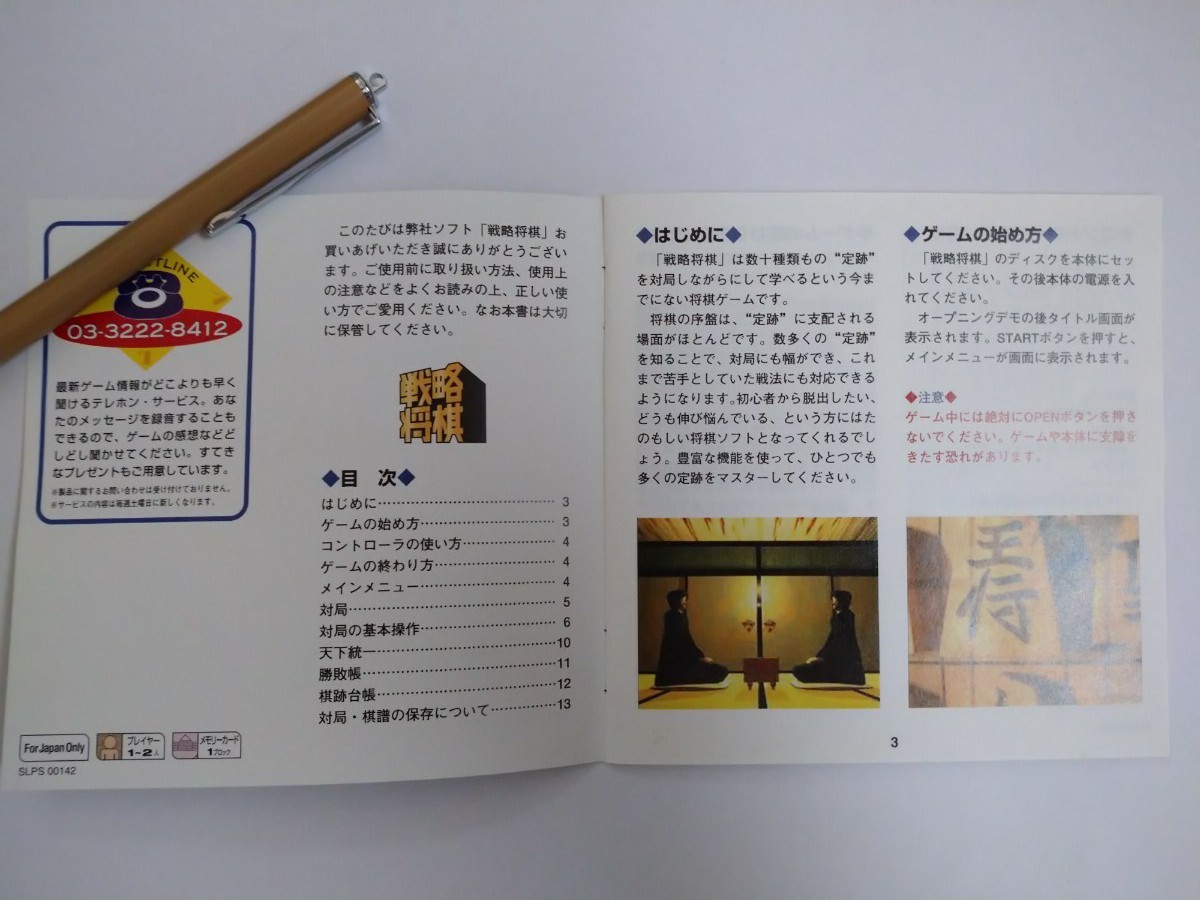 OTLINE
03-3222-8412
最新ゲーム情報がどこよりも早く
聞けるテレホン・サービス。あな
たのメッセージを録音することも
できるので、ゲームの感想などど
しどし聞かせてください。すてき
なプレゼントもご用意しています。
※製品に関するお問い合わせは受け付けておりません。
※サービスの内容は毎週土曜日に新しくなります。
For Japan Only
プレイヤー
1~2人
メモリーカード
1ブロック
SLPS 00142
このたびは弊社ソフト「戦略将棋」お
買いあげいただき誠にありがとうござい
ます。ご使用前に取り扱い方法、使用上
の注意などをよくお読みの上、正しい使
い方でご愛用ください。なお本書は大切
に保管してください。
戦略
将棋
◆目 次◆
はじめに…………………………………3
ゲームの始め方…………………………3
コントローラの使い方…………………4
ゲームの終わり方………………………4
メインメニュー…………………………4
対局………………………………………5
対局の基本操作…………………………6
天下統一…………………………………10
勝敗帳……………………………………11
棋跡台帳…………………………………12
対局・棋譜の保存について……………13
◆はじめに◆
「戦略将棋」は数十種類もの“定跡”
を対局しながらにして学べるという今ま
でにない将棋ゲームです。
将棋の序盤は、“定跡”に支配される
場面がほとんどです。数多くの“定跡”
を知ることで、対局にも幅ができ、これ
まで苦手としていた戦法にも対応できる
ようになります。初心者から脱出したい、
どうも伸び悩んでいる、という方にはた
のもしい将棋ソフトとなってくれるでし
ょう。豊富な機能を使って、ひとつでも
多くの定跡をマスターしてください。
◆ゲームの始め方◆
「戦略将棋」のディスクを本体にセッ
トしてください。その後本体の電源を入
れてください。
オープニングデモの後タイトル画面が
表示されます。STARTボタンを押すと、
メインメニューが画面に表示されます。
◆注意◆
ゲーム中には絶対にOPENボタンを押さ
ないでください。ゲームや本体に支障を
きたす恐れがあります。
3